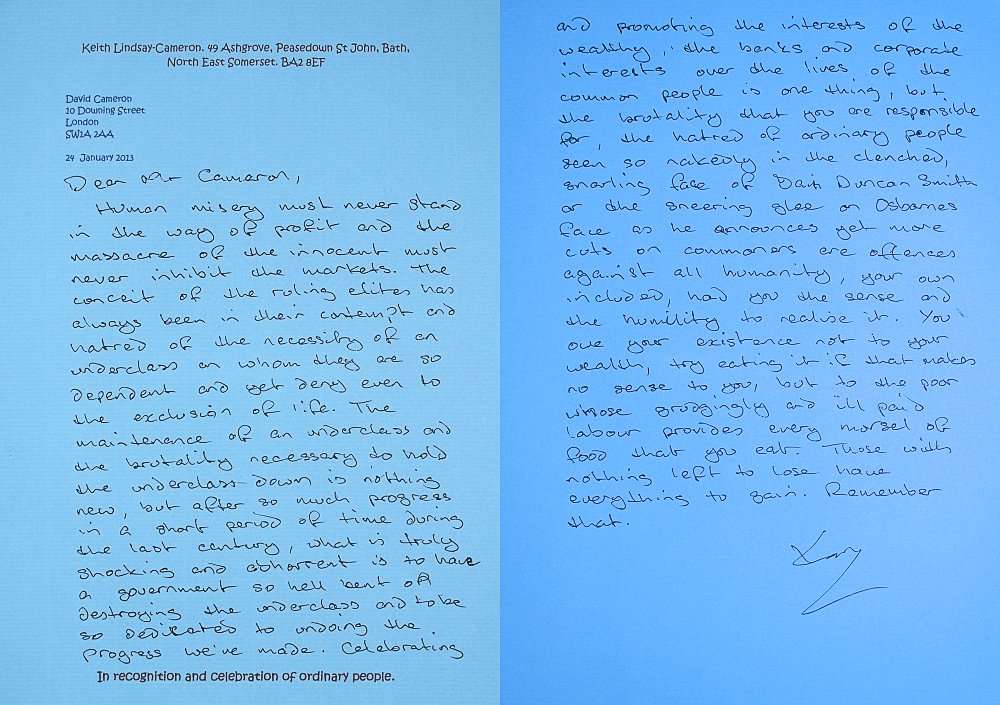 Keith Lindsay-Cameron. 49 Ashgrove, Peasedown St John, Bath,
North East Somerset. BA2 8EF
David Cameron
10 Downing Street
London
SW1A 2AA
24 January 2013
Dear Mr Cameron,
Human misery must never stand
in the way of profit and the
massacre of the innocent must
never inhibit the markets. The
conceit of the ruling elites has
always been in their contempt and
hatred of the necessity of an
underclass on whom they are so
dependent and yet deny even to
the exclusion of life. The
maintenance of an underclass and
the brutality necessary to hold
the underclass down is nothing
new, but after so much progress
in a short period of time during
the last century, what is truly
shocking and abhorrent is to have
a government so hell bent on
destroying the underclass and to be
so dedicated to undoing the
progress we've made. Celebrating
In recognition and celebration of ordinary people.
and promoting the interests of the
wealthy, the banks and corporate
interests over the lives of the
common people is one thing, but
the brutality that you are responsible
for, the hatred of ordinary people
seen so nakedly in the clenched,
snarling face of Iain Duncan Smith
or the sneering glee on Osbornes
face as he announces yet more
cuts on commoners are offences
against all humanity, your own
included, had you the sense and
the humility to realise it. You
owe your existence not to your
wealth, try eating it if that makes
no sense to you, but to the poor
whose grudgingly and ill paid
labour provides every morsel of
food that you eat. Those with
nothing left to lose have
everything to gain. Remember
that.